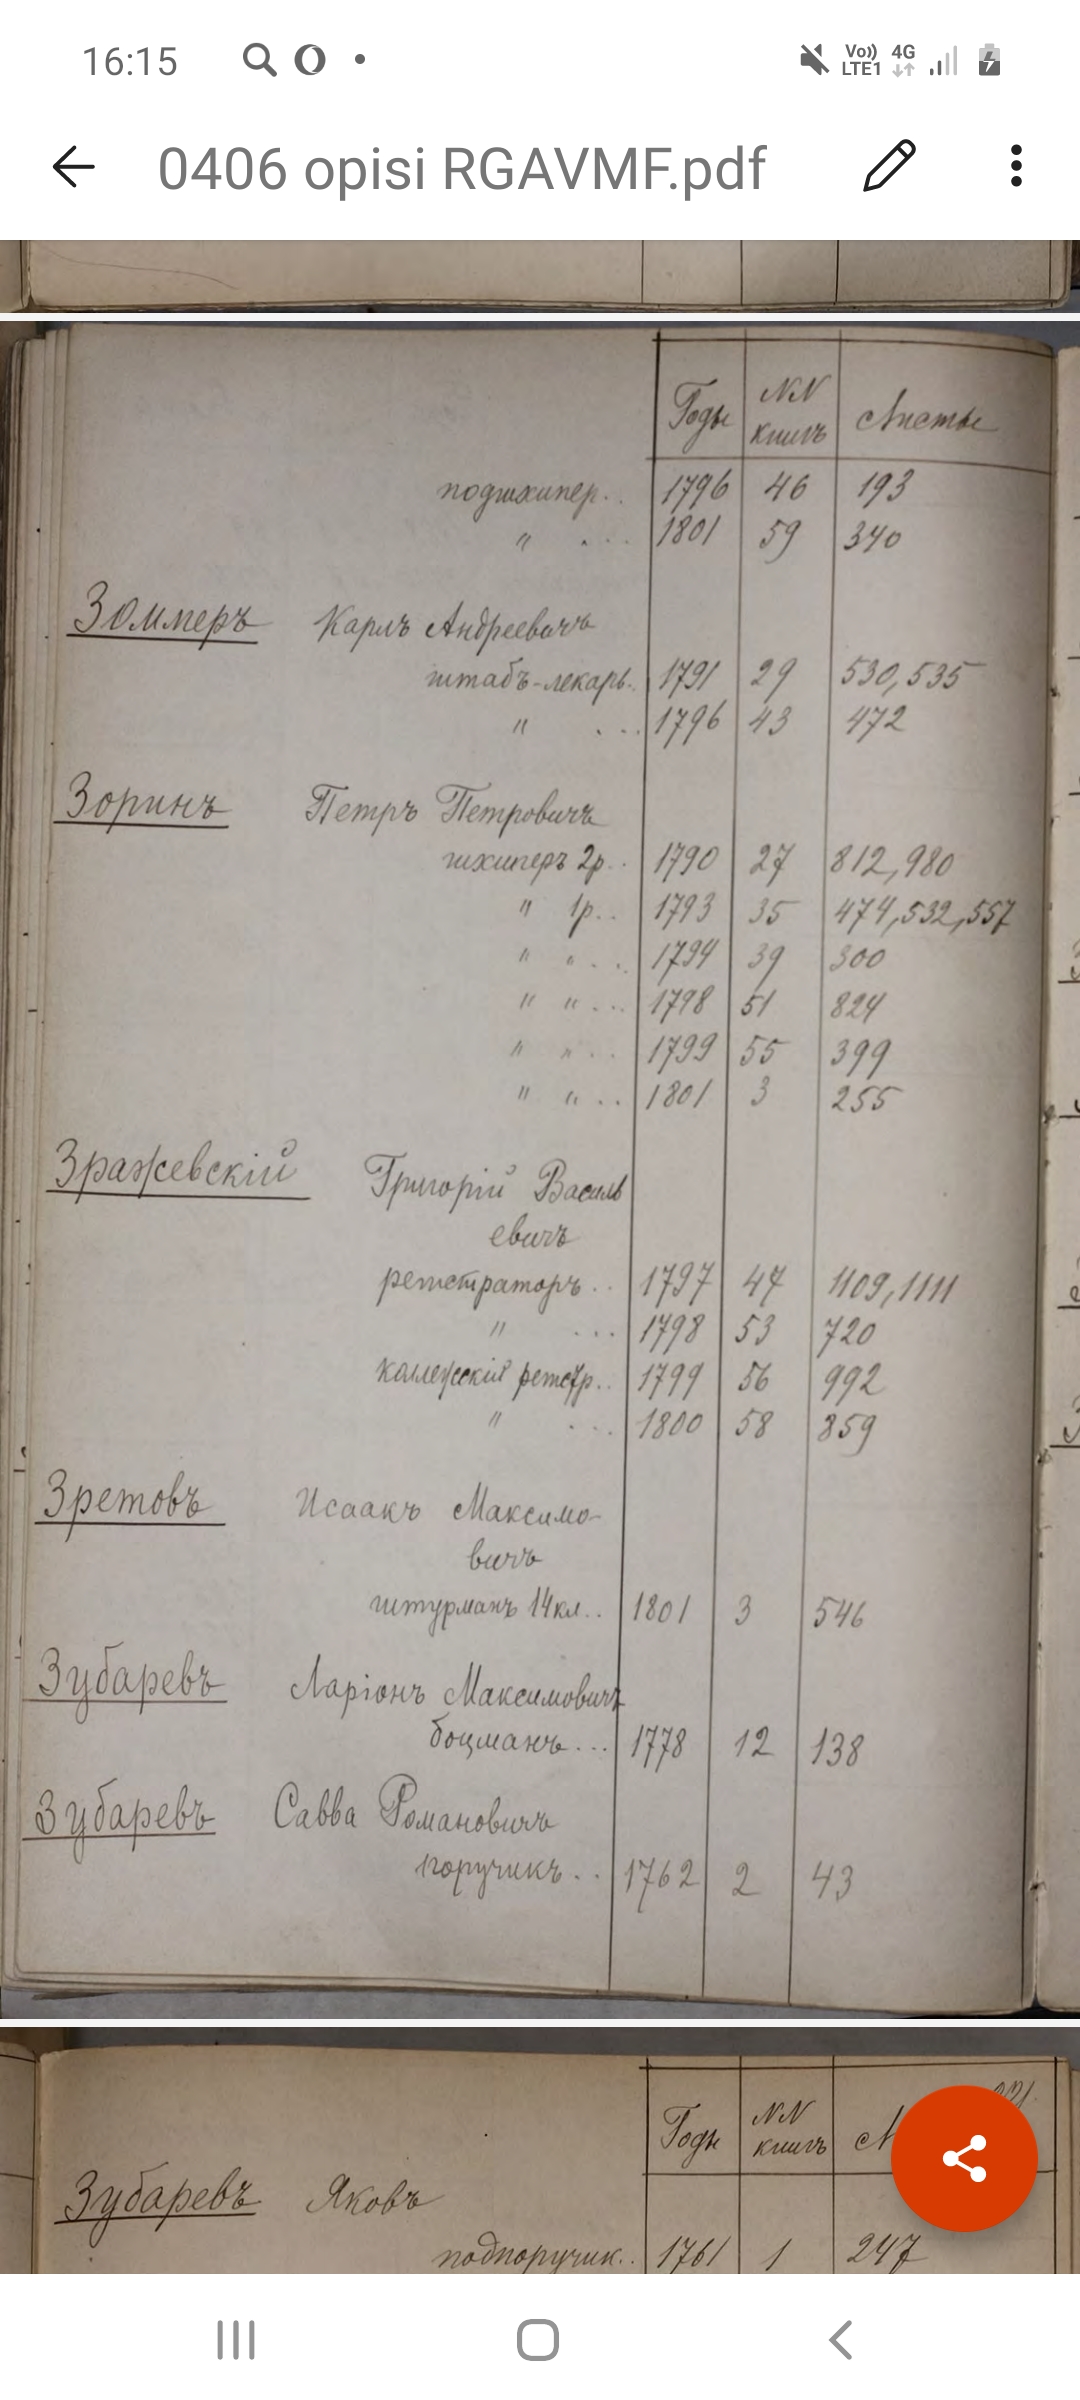 16:15 Vo)) LTE1 4G
0406 opisi RGAVMF.pdf
Годы NN книгъ Листы
подшхипер.. 1796 46 193
" ... 1801 59 340
Зоммеръ Карлъ Андреевичъ
штабъ-лекарь.. 1791 29 530,535
" ... 1796 43 472
Зоринъ Петръ Петровичъ
шхиперъ 2р.. 1790 27 812,980
" 1р.. 1793 35 474,532,557
" " ... 1794 39 300
" " ... 1798 51 824
" " ... 1799 55 399
" " ... 1801 3 255
Зражевскій Григорій Василь
евичъ
регистраторъ.. 1797 47 1109,1111
" ... 1798 53 720
коллежскій регистр.. 1799 56 992
" ... 1800 58 859
Зретовъ Исаакъ Максимо-
вичъ
штурманъ 14кл.. 1801 3 546
Зубаревъ Ларіонъ Максимовичъ
боцманъ... 1778 12 138
Зубаревъ Савва Романовичъ
поручикъ.. 1762 2 43
Годы NN книгъ
Зубаревъ Яковъ
подпоручик.. 1761 1 247